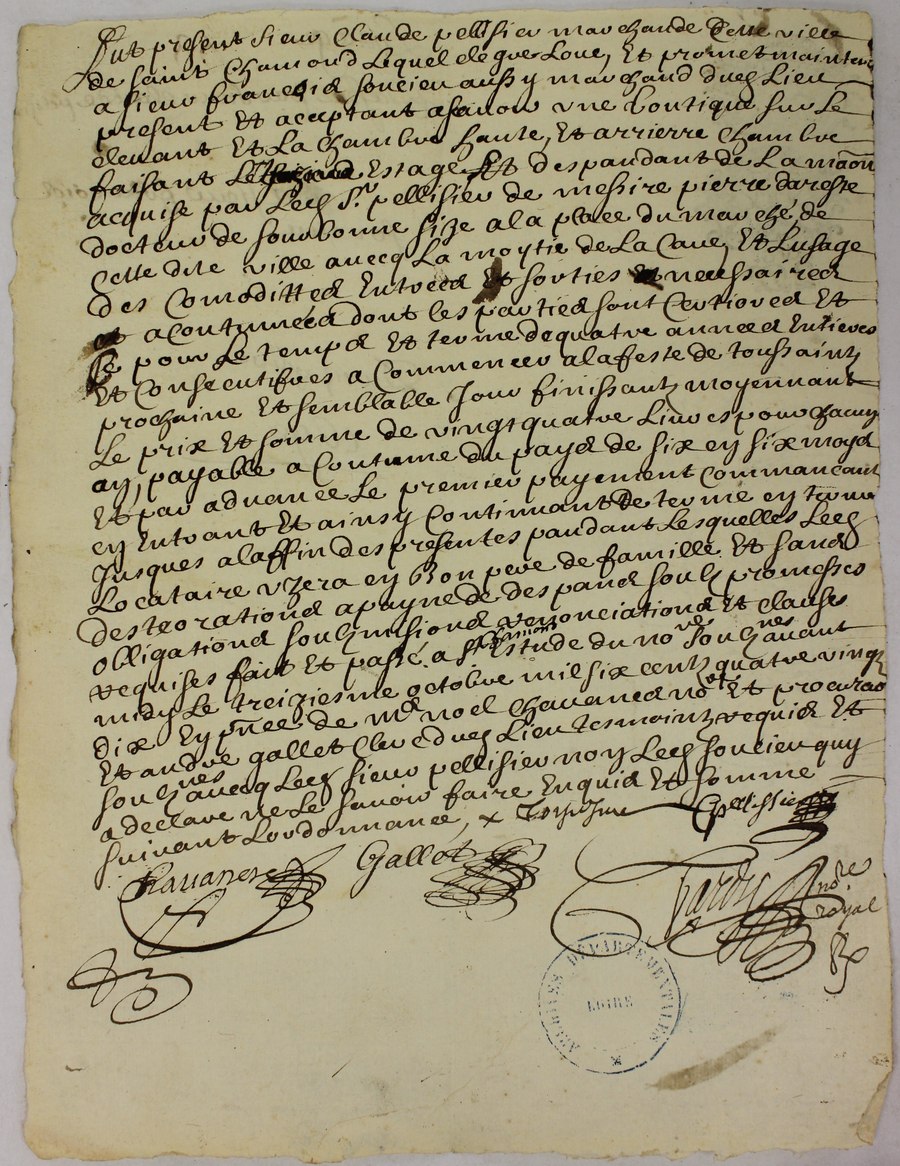 Fut present sieur Claude pellisier marchande dette ville
de saint Chamond Lequel de gre Loue, Et promet maintenir
a sieur françois soncieu aussy marchand dud Lieu
present Et aceptant asavoir vne boutique sur Le
devant Et La chambre haute, Et arrierre chambre
faisant Le Estage Et despandant de La maõn
acquise par Led Sr. pellisier de messire pierre
docteur de sourbonne size a la place du marché de
Cette dite ville avecq La moytie de La Cave, Et Lusage
des Comodittes Entrées Et sorties necessaires
acoutumées dont les parties sont Certiores Et
Ce pour Le temps Et terme de quatre années Entieres
Et Consecutifves a Commencer a la feste de toussaintz
prochaine Et semblable Jour finissantz moyennant
Le prix Et somme de vingt quatre Livres pour chacun
an, payable a Coutume du pays de six en six moys
Et par advance Le premier payement Commancant
en Entrant Et ainsy Continuant de terme en terme
Jusques a laffin des presentes pandant Lesquelles Led
Locataire vzera en Bon pere de famille Et sans
desteorations a payne de despans soubz promesses
obligations soubzmisions renonciations Et clauses
requises fait Et passé a St chamond Estude du nore soubzne avant
midy Le treiziesme octobre mil six centz quatre vingtz
dix En pñce de me noel Chavanes nore Et procureur
Et andre gallet Clerc dud Lieu tesmointz requis Et
soubznes avecq Led sieur pellisier non Led soncieu quy
a declare ne Le savoir faire Enquis Et somme
suivant Lordonnance, x
Cpellissier
Chavanes
Gallet
Tardy
nore
royal
ARCHIVES DÉPARTEMENTALES
LOIRE